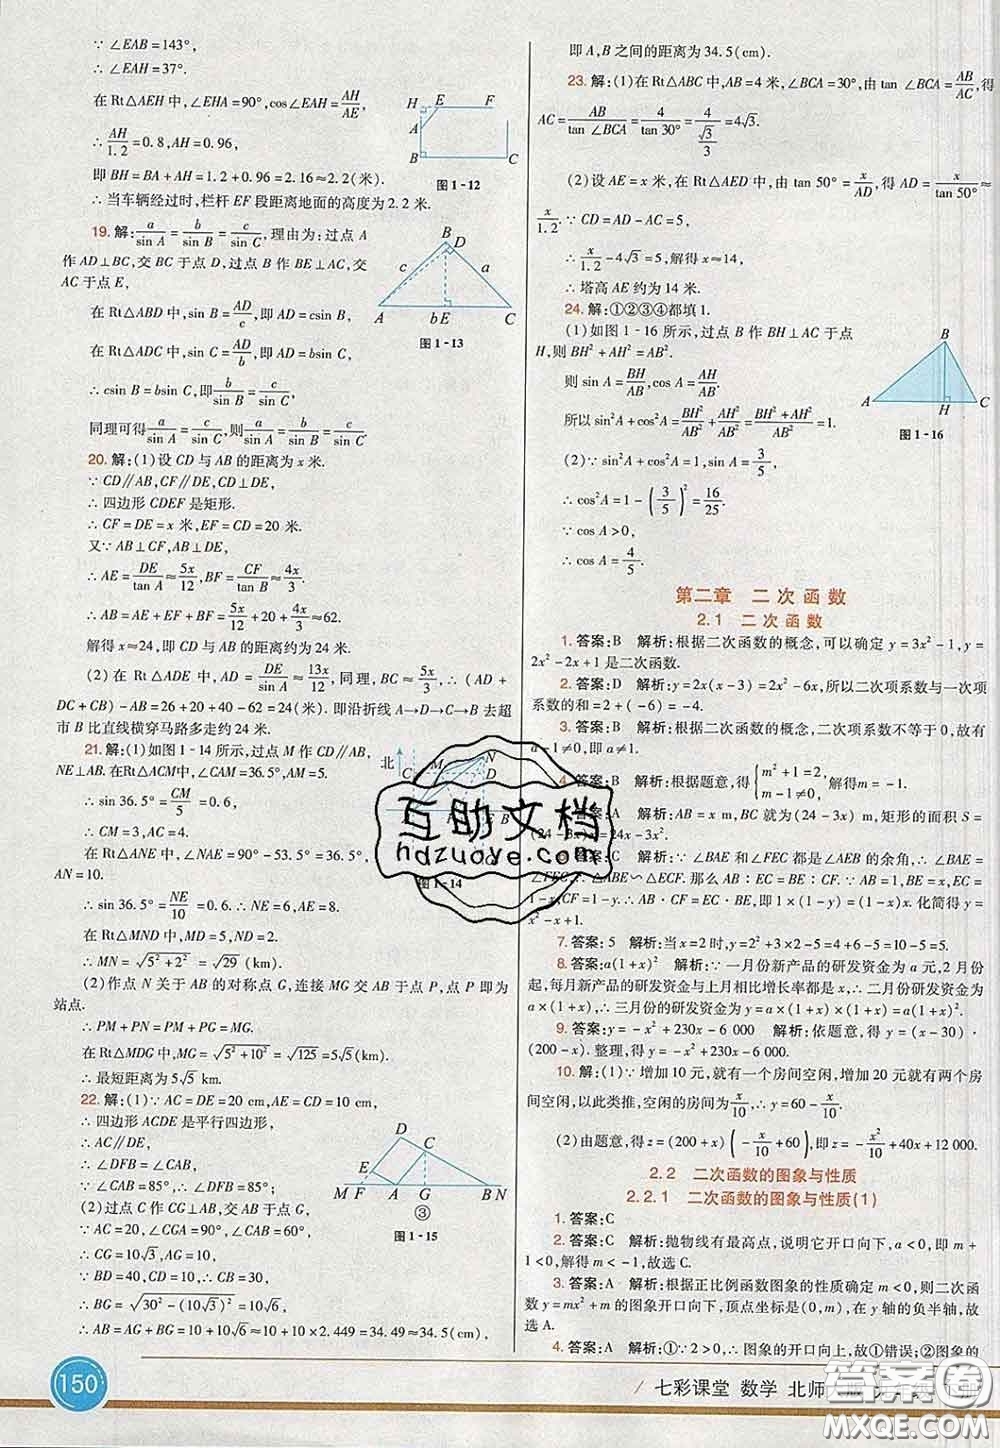 ∵ ∠EAB=143°,
∴ ∠EAH=37°.
在 Rt△AEH 中,∠EHA=90°,cos∠EAH=AH/AE,
∴ AH/1.2=0.8,AH=0.96,
即 BH=BA+AH=1.2+0.96=2.16≈2.2(米).
∴ 当车辆经过时,栏杆 EF 段距离地面的高度为 2.2 米.
H E F A B C
图 1-12
19. 解: a/sin A=b/sin B=c/sin C,理由为:过点 A
作 AD⊥BC,交 BC 于点 D,过点 B 作 BE⊥AC,交
AC 于点 E,
在 Rt△ABD 中,sin B=AD/c,即 AD=csin B,
在 Rt△ADC 中,sin C=AD/b,即 AD=bsin C,
∴ csin B=bsin C,即b/sin B=c/sin C,
同理可得a/sin A=c/sin C,则a/sin A=b/sin B=c/sin C.
B D c a A b E C
图 1-13
20. 解:(1)设 CD 与 AB 的距离为 x 米.
∵ CD∥AB,CF∥DE,CD⊥DE,
∴ 四边形 CDEF 是矩形.
∴ CF=DE=x 米,EF=CD=20 米.
又∵ AB⊥CF,AB⊥DE,
∴ AE=DE/tan A≈5x/12,BF=CF/tan B≈4x/3.
∴ AB=AE+EF+BF=5x/12+20+4x/3≈62.
解得 x≈24,即 CD 与 AB 的距离约为 24 米.
(2)在 Rt△ADE 中,AD=DE/sin A≈13x/12,同理,BC≈5x/3,∴(AD+
DC+CB)-AB=26+20+40-62=24(米).即沿折线 A→D→C→B 去超
市 B 比直线横穿马路多走约 24 米.
21. 解:(1)如图 1-14 所示,过点 M 作 CD∥AB,
NE⊥AB.在 Rt△ACM 中,∠CAM=36.5°,AM=5,
∴ sin 36.5°=CM/5=0.6,
∴ CM=3,AC=4.
在 Rt△ANE 中,∠NAE=90°-53.5°=36.5°,
AN=10.
∴ sin 36.5°=NE/10=0.6,∴ NE=6,AE=8.
在 Rt△MND 中,MD=5,ND=2.
∴ MN=√(5²+2²)=√29 (km).
(2)作点 N 关于 AB 的对称点 G,连接 MG 交 AB 于点 P,点 P 即为
站点.
∴ PM+PN=PM+PG=MG.
在 Rt△MDG 中,MG=√(5²+10²)=√125=5√5(km).
∴ 最短距离为 5√5 km.
北 C M N D B
图 1-14
22. 解:(1)∵ AC=DE=20 cm,AE=CD=10 cm,
∴ 四边形 ACDE 是平行四边形.
∴ AC∥DE,
∴ ∠DFB=∠CAB,
∵ ∠CAB=85°,∴ ∠DFB=85°.
(2)过点 C 作 CG⊥AB,交 AB 于点 G,
∵ AC=20,∠CGA=90°,∠CAB=60°,
∴ CG=10√3,AG=10.
∵ BD=40,CD=10,∴ CB=30,
∴ BG=√(30²-(10√3)²)=10√6,
∴ AB=AG+BG=10+10√6≈10+10×2.449=34.49≈34.5(cm),
D C E M F A G B N ③
图 1-15
即 A,B 之间的距离为 34.5(cm).
23. 解:(1)在 Rt△ABC 中,AB=4 米,∠BCA=30°,由 tan∠BCA=AB/AC,得
AC=AB/tan∠BCA=4/tan 30°=4/(√3/3)=4√3.
(2)设 AE=x 米,在 Rt△AED 中,由 tan 50°=x/AD,得 AD=x/tan 50°≈
x/1.2.∵ CD=AD-AC=5,
∴ x/1.2-4√3=5,解得 x≈14,
∴ 塔高 AE 约为 14 米.
24. 解:①②③④都填1.
(1)如图 1-16 所示,过点 B 作 BH⊥AC 于点
H,则 BH²+AH²=AB².
则 sin A=BH/AB,cos A=AH/AB.
所以 sin²A+cos²A=BH²/AB²+AH²/AB²=(BH²+AH²)/AB²=1.
(2)∵ sin²A+cos²A=1,sin A=3/5,
∴ cos²A=1-(3/5)²=16/25.
∵ cos A>0,
∴ cos A=4/5.
B A H C
图 1-16
第二章 二次函数
2.1 二次函数
1. 答案:B 解析:根据二次函数的概念,可以确定 y=3x²-1,y=
2x²-2x+1 是二次函数.
2. 答案:D 解析:y=2x(x-3)=2x²-6x,所以二次项系数与一次项
系数的和=2+(-6)=-4.
3. 答案:B 解析:根据二次函数的概念,二次项系数不等于 0,故有
a-1≠0,即 a≠1.
4. 答案:B 解析:根据题意,得{m²+1=2, m-1≠0, 解得 m=-1.
5. 答案:A 解析:AB=x m,BC 就为(24-3x) m,矩形的面积 S=
(24-3x)x=24x-3x².
6. 答案:C 解析:∵ ∠BAE 和∠FEC 都是∠AEB 的余角,∴ ∠BAE=
∠FEC.∴ △ABE∽△ECF. 那么 AB:EC=BE:FC.∵ AB=1,BE=x,EC=
1-x,CF=1-y.∴ AB·CF=EC·BE,即 1×(1-y)=(1-x)x. 化简得
y=x²-x+1.
7. 答案:5 解析:当 x=2时,y=2x²+3x-9=2×2²+3×2-9=8+6-9=5.
8. 答案:a(1+x)² 解析:∵ 一月份新产品的研发资金为 a 元,2 月份
起,每月新产品的研发资金与上月相比增长率都是 x,∴ 二月份研发资金为
a×(1+x),∴ 三月份的研发资金为 a×(1+x)×(1+x)=a(1+x)².
9. 答案:y=-x²+230x-6 000 解析:依题意,得 y=(x-30)·
(200-x).整理,得 y=-x²+230x-6 000.
10. 解:(1)∵ 增加 10 元,就有一个房间空闲,增加 20 元就有两个房
间空闲,以此类推,空闲的房间为x/10,∴ y=60-x/10.
(2)由题意,得 z=(200+x)(-x/10+60),即z=-x²/10+40x+12 000.
2.2 二次函数的图象与性质
2.2.1 二次函数的图象与性质(1)
1. 答案:C
2. 答案:C 解析:抛物线有最高点,说明它开口向下,a<0,即 m+
1<0,解得 m<-1,故选 C.
3. 答案:A 解析:根据正比例函数图象的性质确定 m<0,则二次函
数 y=mx²+m 的图象开口向下,顶点坐标是(0,m),在 y 轴的负半轴,故
选 A.
4. 答案:A 解析:①∵ 2>0,∴ 图象的开口向上,故①错误;②图象的
150
七彩课堂 数学 北师
互助文档
hdzuoye.com
答案圈
MXQE.COM